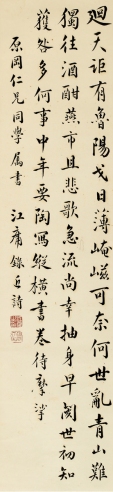 迴天詎有魯陽戈日薄崦嵫可奈何世亂青山難
獨往酒酣燕市且悲歌急流尚幸抽身早閱世初知
獲咎多何事中年要陶寫縱橫書卷待摩挲
原岡仁兄同學屬書
江庸錄近詩